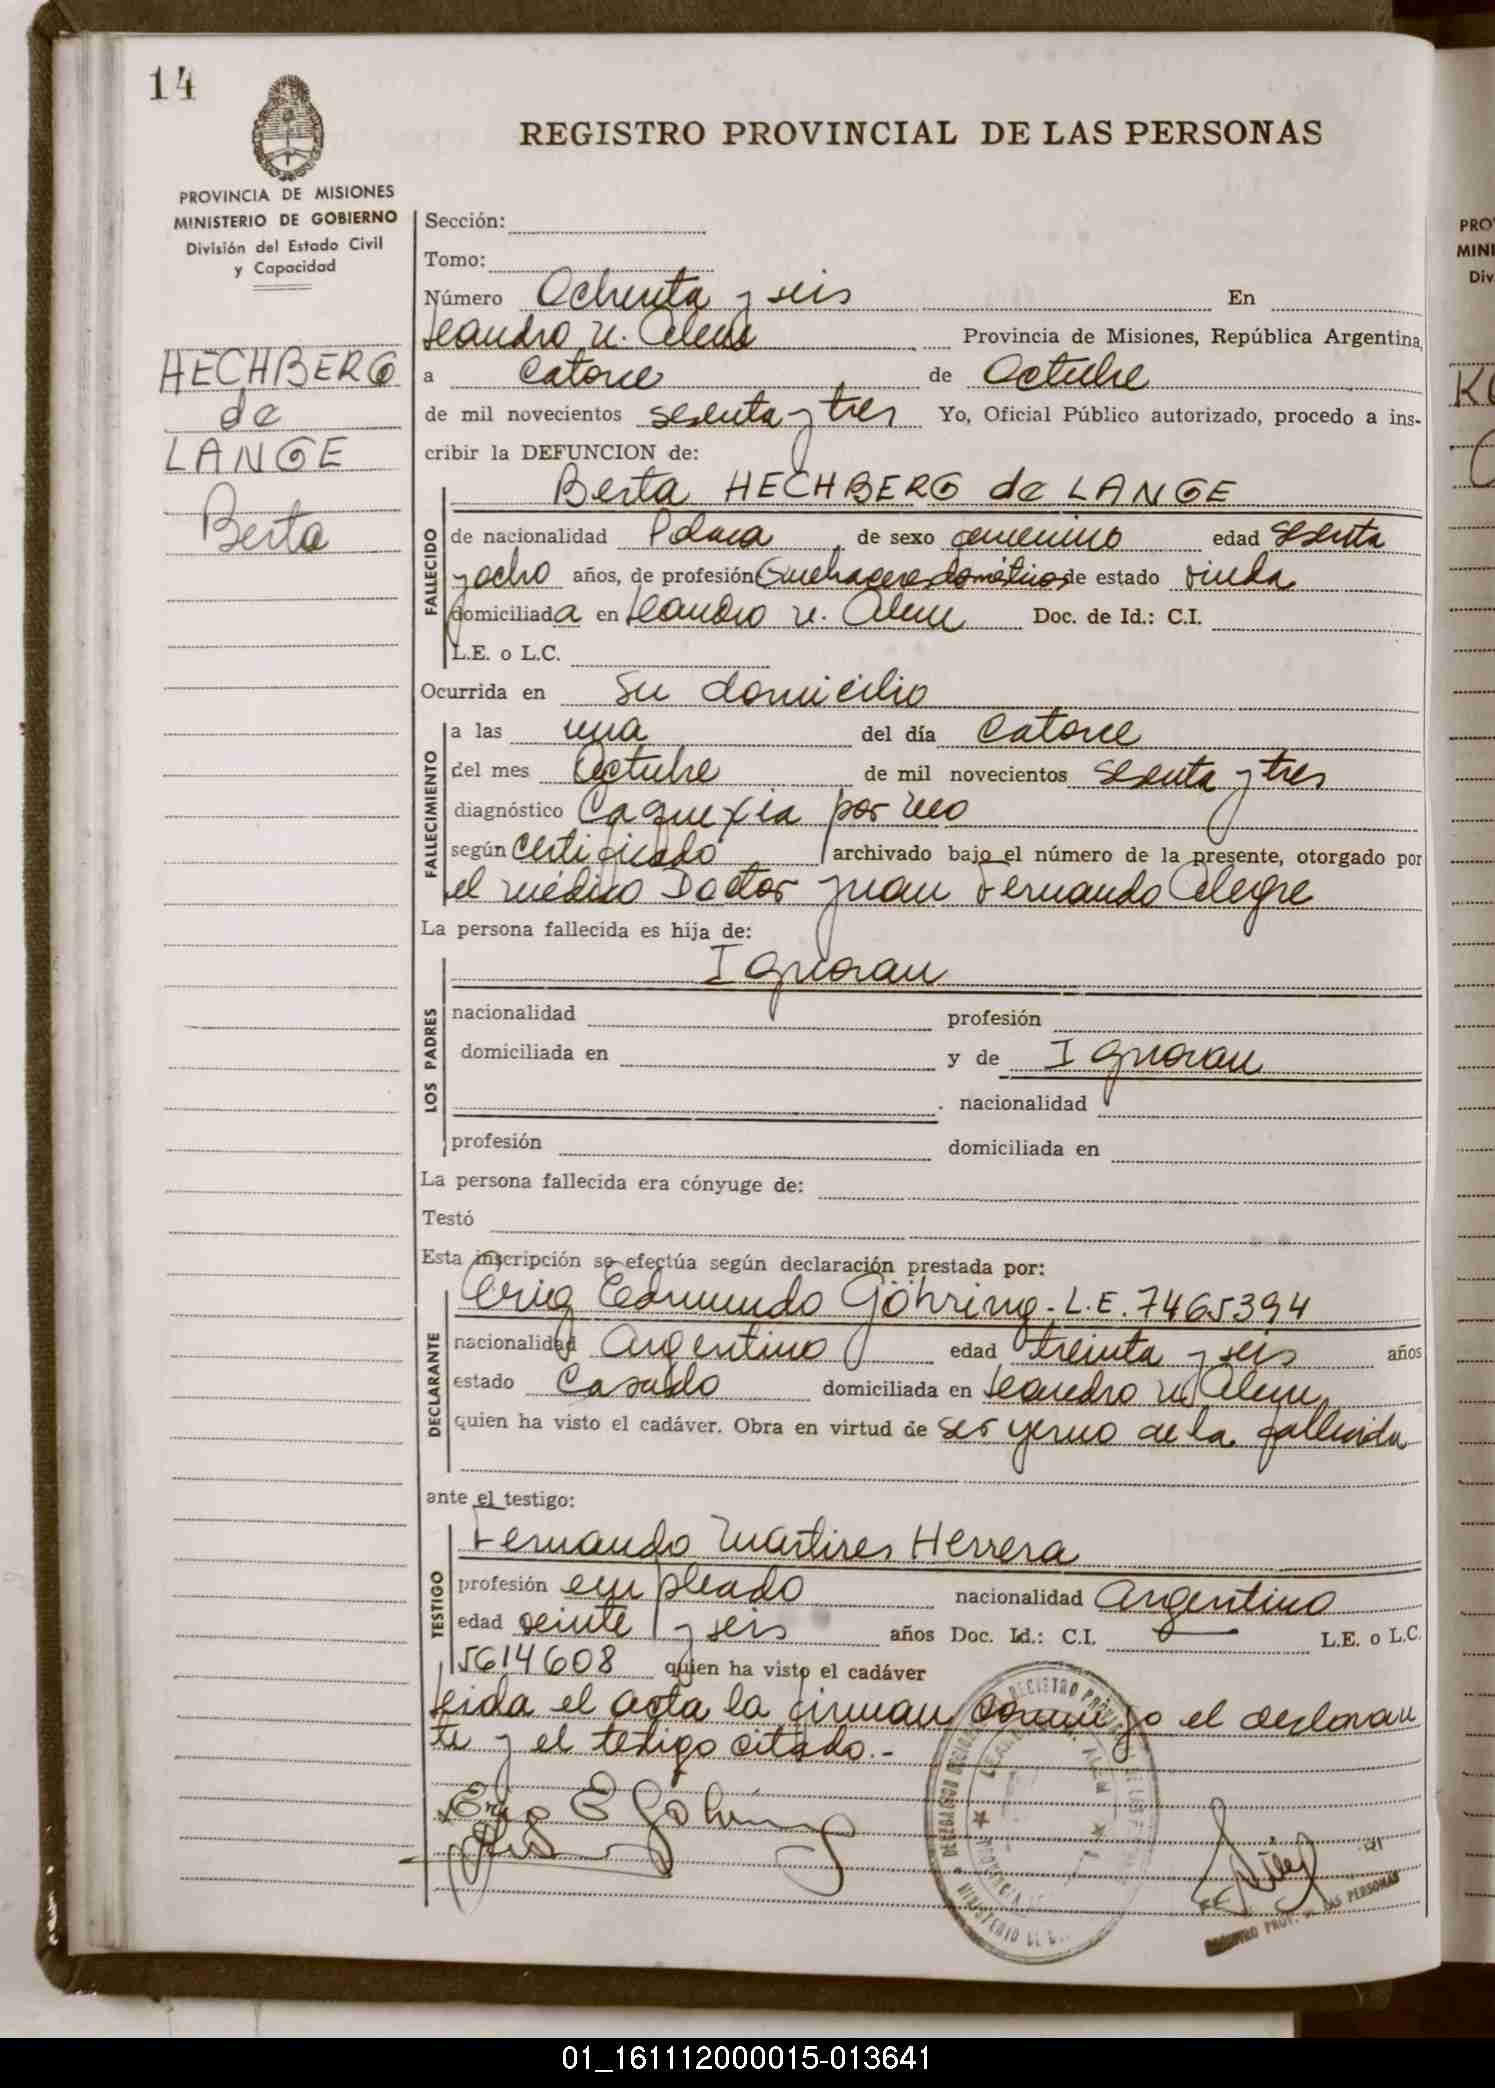 14
REGISTRO PROVINCIAL DE LAS PERSONAS
PROVINCIA DE MISIONES
MINISTERIO DE GOBIERNO
División del Estado Civil
y Capacidad
HECHBERG
de
LANGE
Berta
Sección:
Tomo:
Número Ochenta y seis En
Leandro N. Alem Provincia de Misiones, República Argentina,
a Catorce de Octubre
de mil novecientos sesenta y tres Yo, Oficial Público autorizado, procedo a ins-
cribir la DEFUNCION de:
Berta HECHBERG de LANGE
FALLECIDO
de nacionalidad Polaca de sexo femenino edad sesenta
y ocho años, de profesión Quehaceres domésticos de estado viuda
domiciliada en Leandro N. Alem Doc. de Id.: C.I.
L.E. o L.C.
Ocurrida en su domicilio
FALLECIMIENTO
a las una del día Catorce
del mes Octubre de mil novecientos sesenta y tres
diagnóstico Caquexia por
según certificado archivado bajo el número de la presente, otorgado por
el médico Doctor Juan Fernando Alegre
La persona fallecida es hija de:
Ignoran
LOS PADRES
nacionalidad profesión
domiciliada en y de Ignoran
nacionalidad
profesión domiciliada en
La persona fallecida era cónyuge de:
Testó
Esta inscripción se efectúa según declaración prestada por:
Erig Edmundo Göhring - L.E. 7465394
DECLARANTE
nacionalidad Argentino edad treinta y seis años
estado Casado domiciliada en Leandro N. Alem
quien ha visto el cadáver. Obra en virtud de ser yerno de la fallecida
ante el testigo:
Fernando Martires Herrera
TESTIGO
profesión empleado nacionalidad Argentino
edad veinte y seis años Doc. Id.: C.I. L.E. o L.C.
5614608 quien ha visto el cadáver
Leida el acta la firman conmigo el declaran
te y el testigo citado.-
E Göhring
REGISTRO PROV. DE LAS PERSONAS
PRO
MINI
Div
01_161112000015-013641